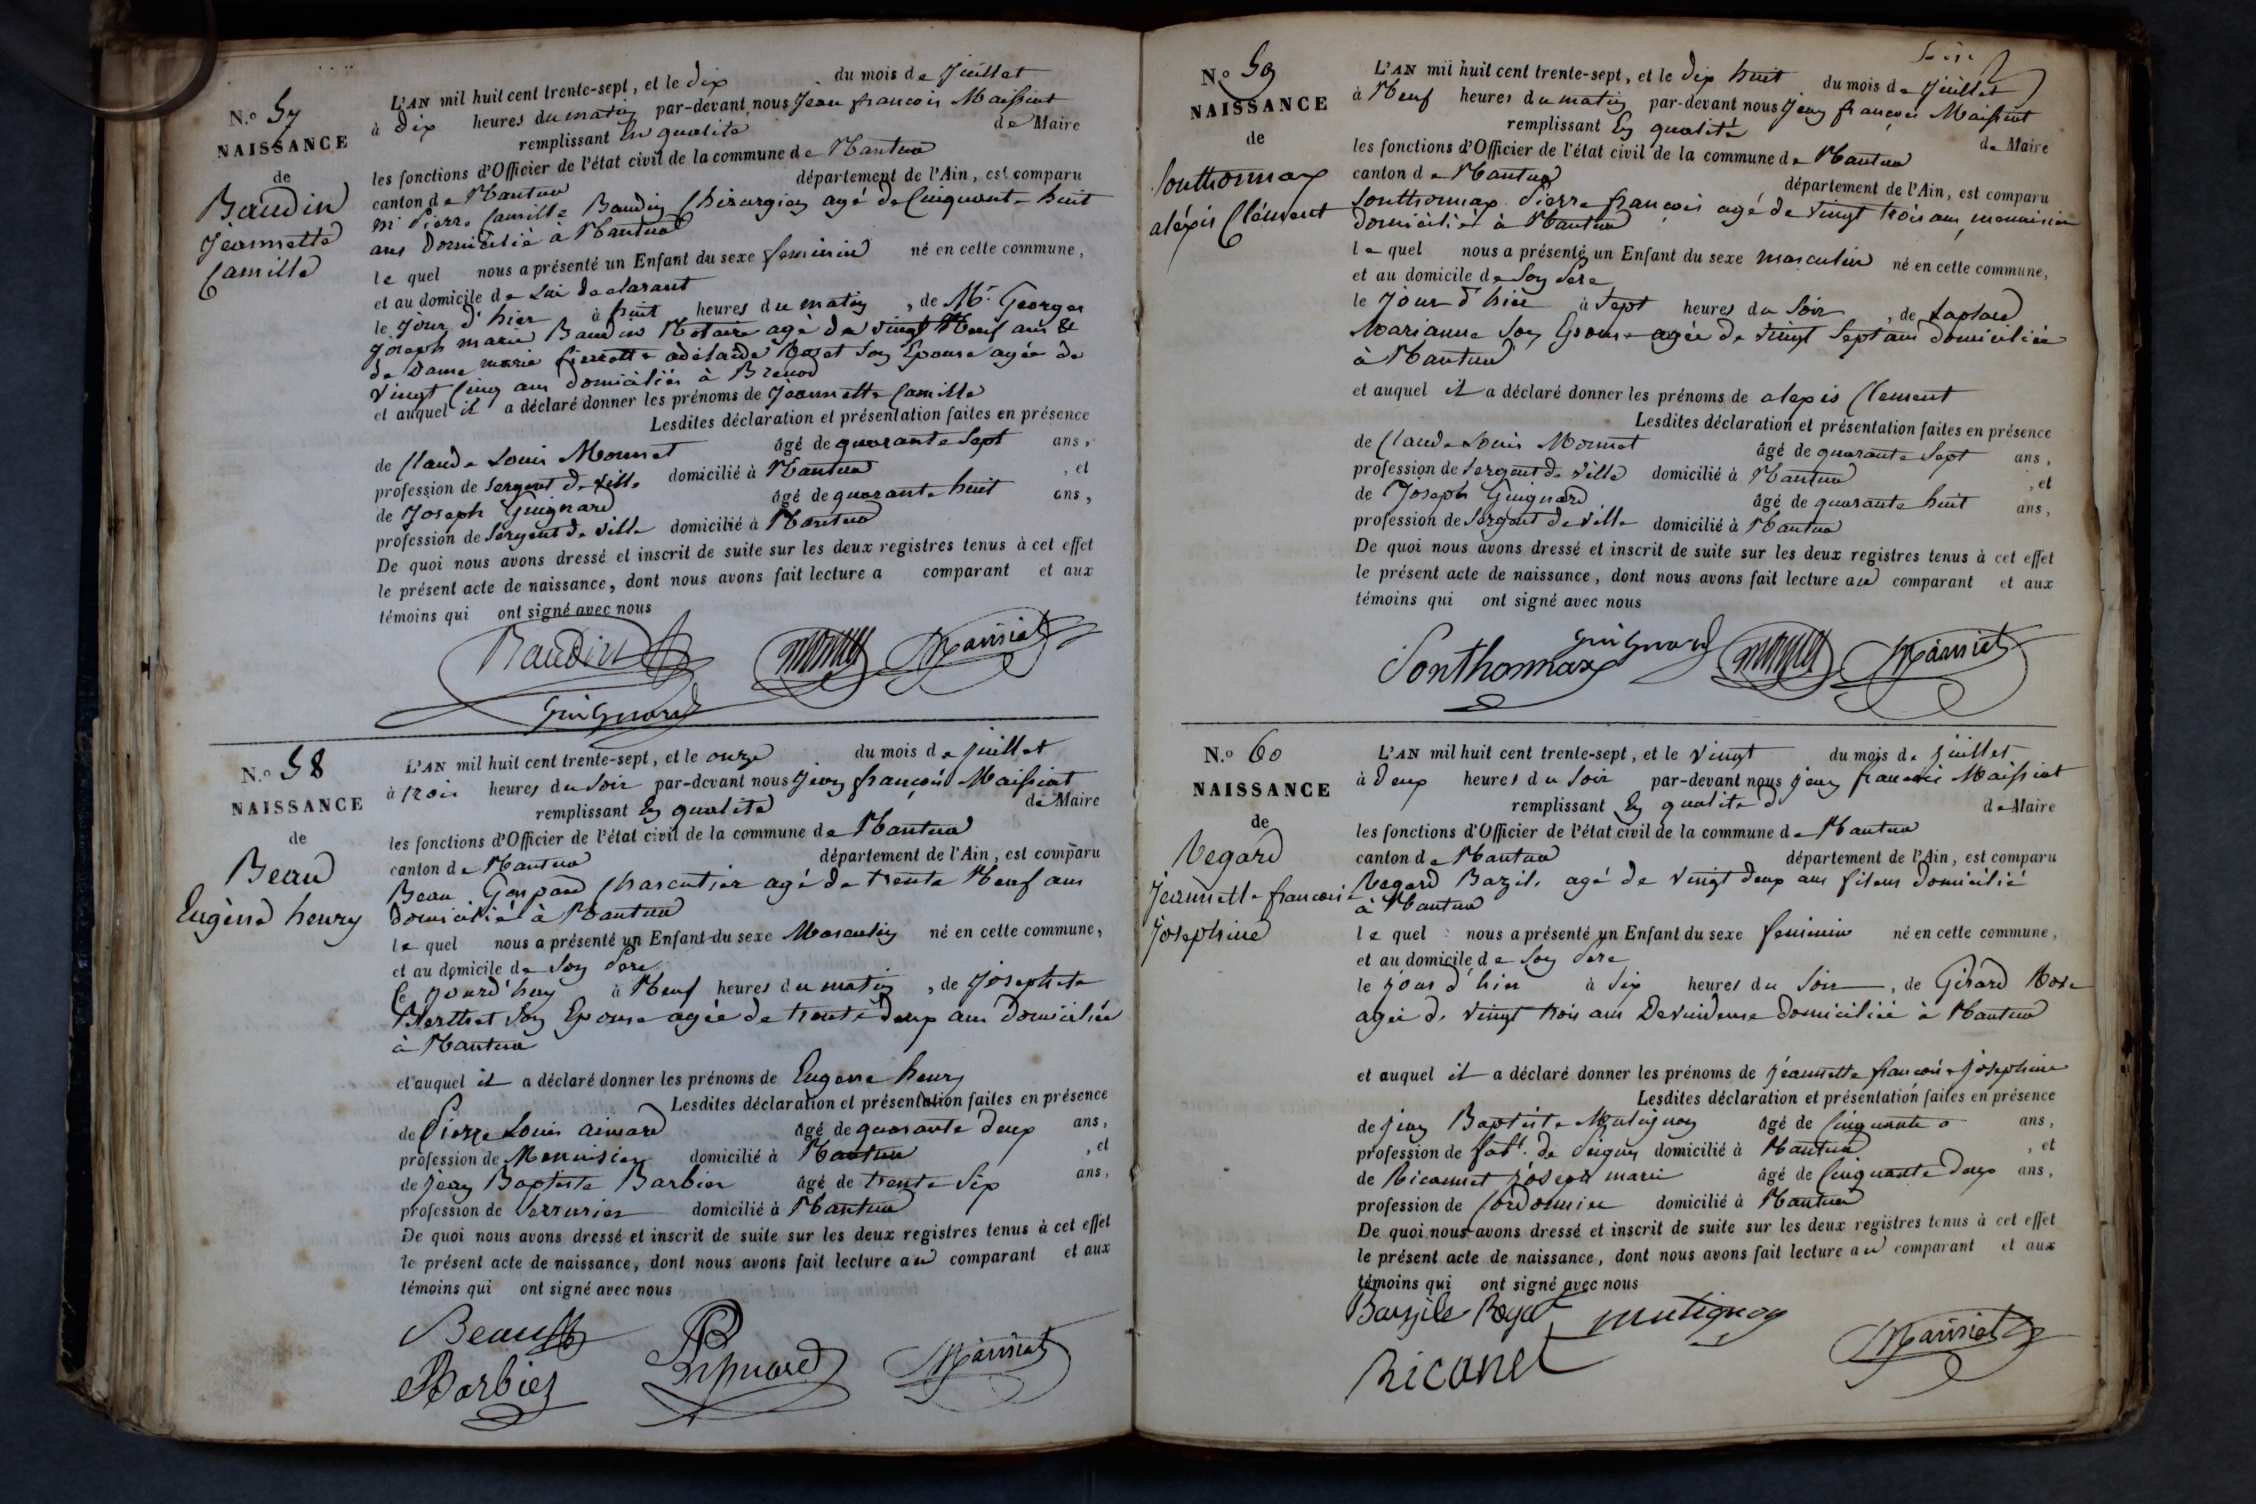 N.o 57
NAISSANCE
de
Baudin
Jeannette
Camille
L'AN mil huit cent trente-sept, et le dix du mois de Juillet
à dix heures du matin par-devant nous Jean françois Maissiat
remplissant En qualité de Maire
les fonctions d'Officier de l'état civil de la commune de Nantua
canton de Nantua département de l'Ain, est comparu
Mr Pierre Camille Baudin Chirurgien agé de Cinquante huit
ans domicilié à Nantua
le quel nous a présenté un Enfant du sexe feminin né en cette commune,
et au domicile de lui declarant
le jour d'hier à huit heures du matin, de Mr. Georges
joseph marie Baudin Notaire agé de vingt Neuf ans &
de Dame marie pierrette adélaide Rozet son Epouse agée de
vingt Cinq ans domiciliés à Brenod
et auquel il a déclaré donner les prénoms de Jeannette Camille
Lesdites déclaration et présentation faites en présence
de Claude Louis Monnet âgé de quarante Sept ans,
profession de Sergent de ville domicilié à Nantua, et
de Joseph Guignard âgé de quarante huit ans,
profession de Sergent de ville domicilié à Nantua
De quoi nous avons dressé et inscrit de suite sur les deux registres tenus à cet effet
le présent acte de naissance, dont nous avons fait lecture a comparant et aux
témoins qui ont signé avec nous
Baudin Monnet Maissiat
Guignard
N.o 58
NAISSANCE
de
Beau
Eugène henry
L'AN mil huit cent trente-sept, et le onze du mois de juillet
à trois heures du Soir par-devant nous Jean françois Maissiat
remplissant En qualité de Maire
les fonctions d'Officier de l'état civil de la commune de Nantua
canton de Nantua département de l'Ain, est comparu
Beau Gaspard Charcutier agé de trente Neuf ans
domicilié à Nantua
le quel nous a présenté un Enfant du sexe Masculin né en cette commune,
et au domicile de Son Pere
le jourd'huy à Neuf heures du matin, de Josephte
Berthet Son Epouse agée de trente deux ans domiciliée
à Nantua
et auquel il a déclaré donner les prénoms de Eugene henry
Lesdites déclaration et présentation faites en présence
de Pierre Louis aimard âgé de quarante deux ans,
profession de Menuisier domicilié à Nantua, et
de jean Baptiste Barbier âgé de trente Six ans,
profession de Serrurier domicilié à Nantua
De quoi nous avons dressé et inscrit de suite sur les deux registres tenus à cet effet
le présent acte de naissance, dont nous avons fait lecture au comparant et aux
témoins qui ont signé avec nous
Beau
Barbier Maissiat
N.o 59
NAISSANCE
de
Sonthonnax
aléxis Clément
L'AN mil huit cent trente-sept, et le dix huit du mois de Juillet
à Neuf heures du matin par-devant nous Jean françois Maissiat
remplissant En qualité de Maire
les fonctions d'Officier de l'état civil de la commune de Nantua
canton de Nantua département de l'Ain, est comparu
Sonthonnax Pierre françois agé de vingt trois ans, menuisier
domicilié à Nantua
le quel nous a présenté un Enfant du sexe masculin né en cette commune,
et au domicile de Son Pere
le jour d'hier à Sept heures du Soir, de
Marianne Son Epouse agée de vingt Sept ans domiciliée
à Nantua
et auquel il a déclaré donner les prénoms de alexis Clement
Lesdites déclaration et présentation faites en présence
de Claude Louis Monnet âgé de quarante Sept ans,
profession de Sergent de ville domicilié à Nantua, et
de Joseph Guignard âgé de quarante huit ans,
profession de Sergent de ville domicilié à Nantua
De quoi nous avons dressé et inscrit de suite sur les deux registres tenus à cet effet
le présent acte de naissance, dont nous avons fait lecture au comparant et aux
témoins qui ont signé avec nous
Sonthonnax Guignard Monnet Maissiat
N.o 60
NAISSANCE
de
Regard
Jeannette francoise
Josephine
L'AN mil huit cent trente-sept, et le vingt du mois de juillet
à deux heures du Soir par-devant nous jean francois Maissiat
remplissant En qualité de Maire
les fonctions d'Officier de l'état civil de la commune de Nantua
canton de Nantua département de l'Ain, est comparu
Regard Bazile agé de vingt deux ans fileur domicilié
à Nantua
le quel nous a présenté un Enfant du sexe feminin né en cette commune,
et au domicile de Son Pere
le jour d'hier à Six heures du Soir, de Girard Rose
agée de vingt trois ans Devideuse domiciliée à Nantua
et auquel il a déclaré donner les prénoms de jeannette francoise josephine
Lesdites déclaration et présentation faites en présence
de jean Baptiste Mutignon âgé de Cinquante ans,
profession de fabt. de Peignes domicilié à Nantua, et
de Ricannet joseph marie âgé de Cinquante deux ans,
profession de Cordonnier domicilié à Nantua
De quoi nous avons dressé et inscrit de suite sur les deux registres tenus à cet effet
le présent acte de naissance, dont nous avons fait lecture au comparant et aux
témoins qui ont signé avec nous
mutignon
Ricanet Maissiat